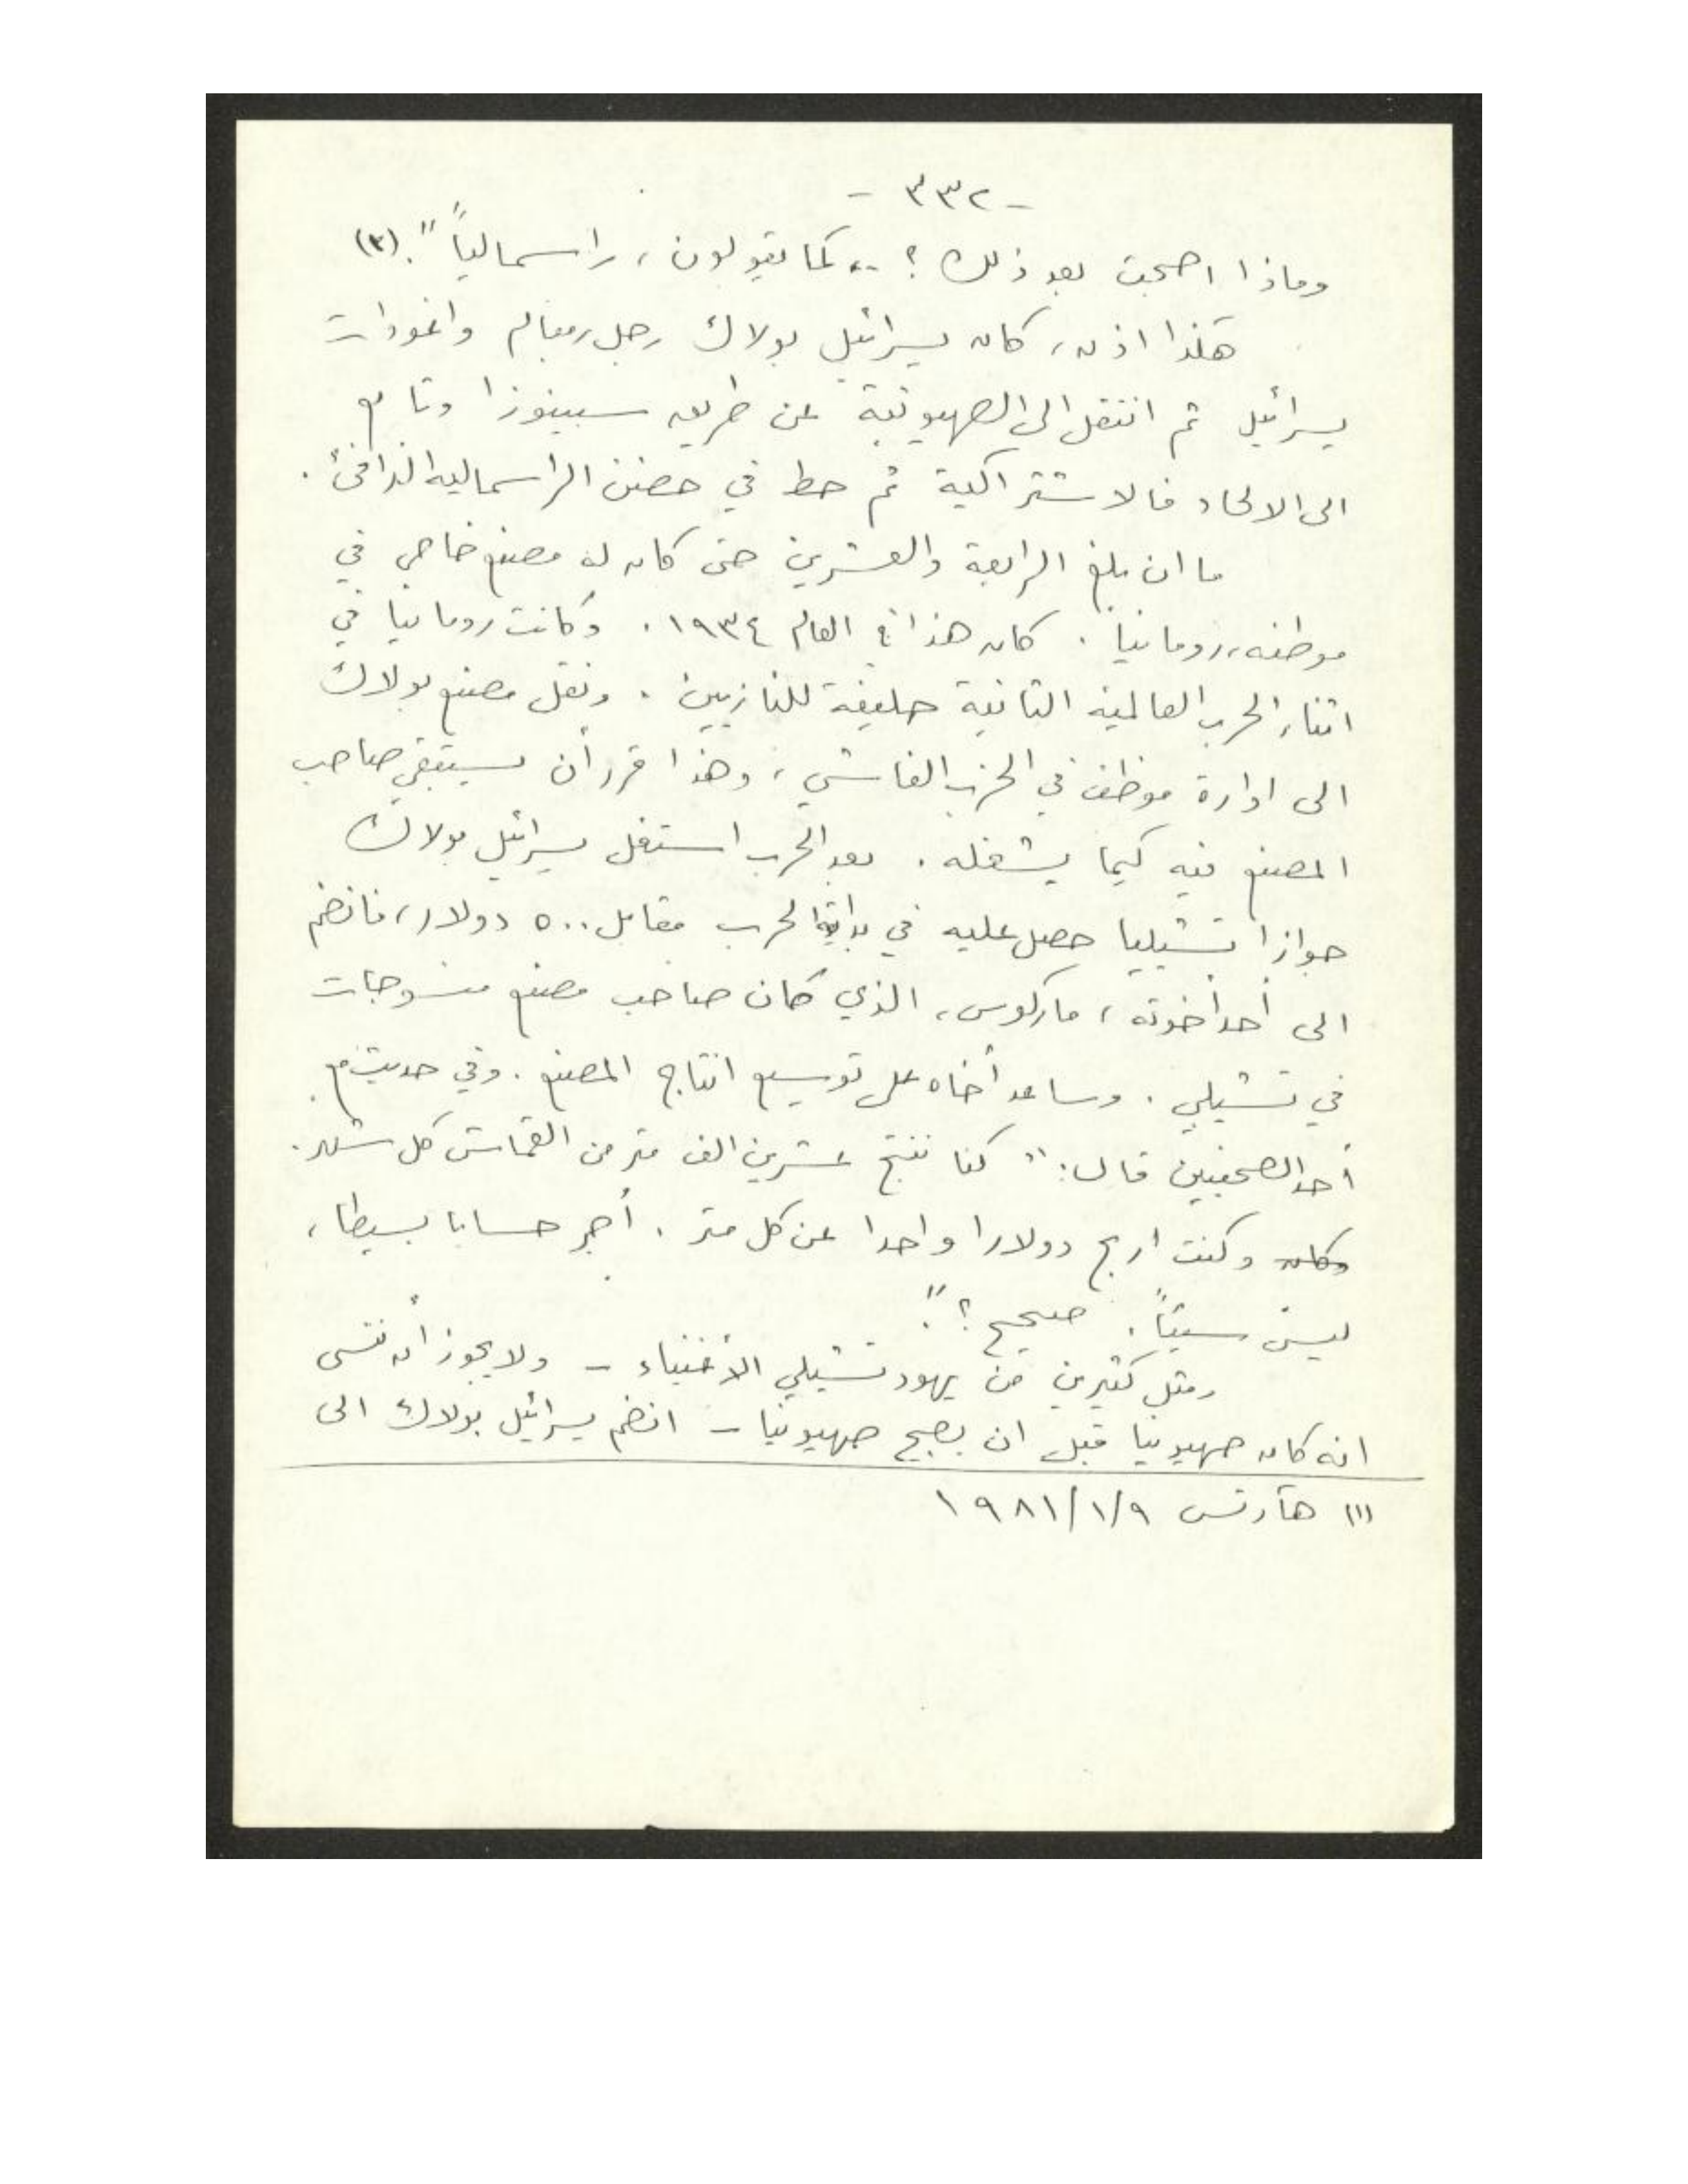 - ٣٣٢ -
وماذا اصبحت بعد ذلك ؟ .. كما يقولون ، راسمالياً " . (٣)
هكذا اذن ، كان يسرائيل بولاك رجل
يسرائيل ثم انتقل الى الصهيونية عن طريق سبينوزا وتابع
الى الالحاد فالاشتراكية ثم حط في حضن الراسمالية الدافئ .
ما ان بلغ الرابعة والعشرين حتى كان له مصنع خاص في
موطنه ، رومانيا . كان هذا في العام ١٩٣٤ . وكانت رومانيا في
اثناء الحرب العالمية الثانية حليفة للنازيين . ونقل مصنع بولاك
الى ادارة موظف في الحزب الفاشي ، وهذا قرر أن يستبقي صاحب
المصنع فيه كيما يشغله . بعد الحرب استغل يسرائيل بولاك
جوازا تشيليا حصل عليه في بداية الحرب مقابل ٥٠٠ دولار ، فانضم
الى أحد أخوته ، ماركوس ، الذي كان صاحب مصنع منسوجات
في تشيلي . وساعد أخاه على توسيع انتاج المصنع . وفي حديث مع
أحد الصحفيين قال : " كنا ننتج عشرين الف متر من القماش كل شهر .
وكان وكنت اربح دولارا واحدا عن كل متر . أجر حسابا بسيطا ،
ليس سيئاً . صحيح ؟ " .
ومثل كثيرين من يهود تشيلي الأغنياء - ولا يجوز أن ننسى
انه كان صهيونيا قبل ان يصبح صهيونيا - انضم يسرائيل بولاك الى
(١) هآرتس ١٩٨١/١/٩